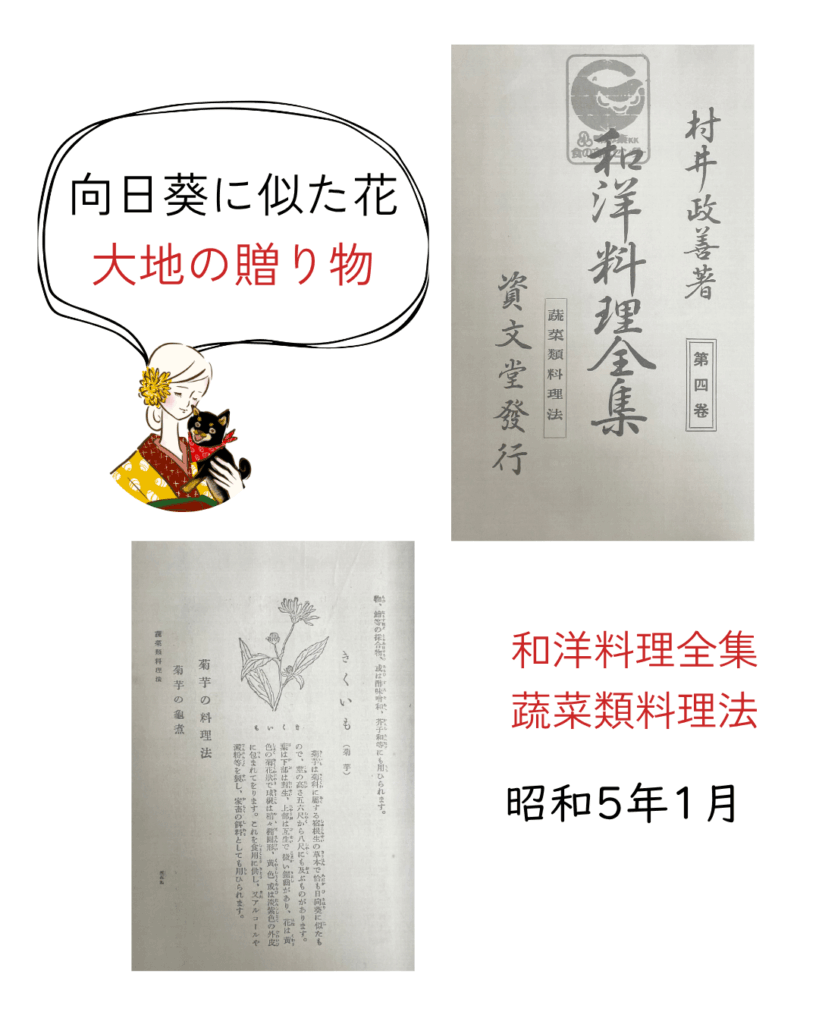 向日葵に似た花
大地の贈り物
村井政善著
第四卷
和洋料理全集
蔬菜類料理法
資文堂發行
和洋料理全集
蔬菜類料理法
昭和5年1月
物、鮓等の
にも用ひられます。
きくいも（菊芋）
きくいも
菊芋は菊科に屬する宿根生の草本で恰も日向葵に似たも
ので、莖の高さ五六尺から八尺にも及ぶものがあります。
色の菊花狀で
に包まれてをります。これを食用に供し、又アルコールや
澱粉等を製し、家畜の飼料としても用ひられます。
菊芋の料理法
菊芋の龜煮
蔬菜類料理法